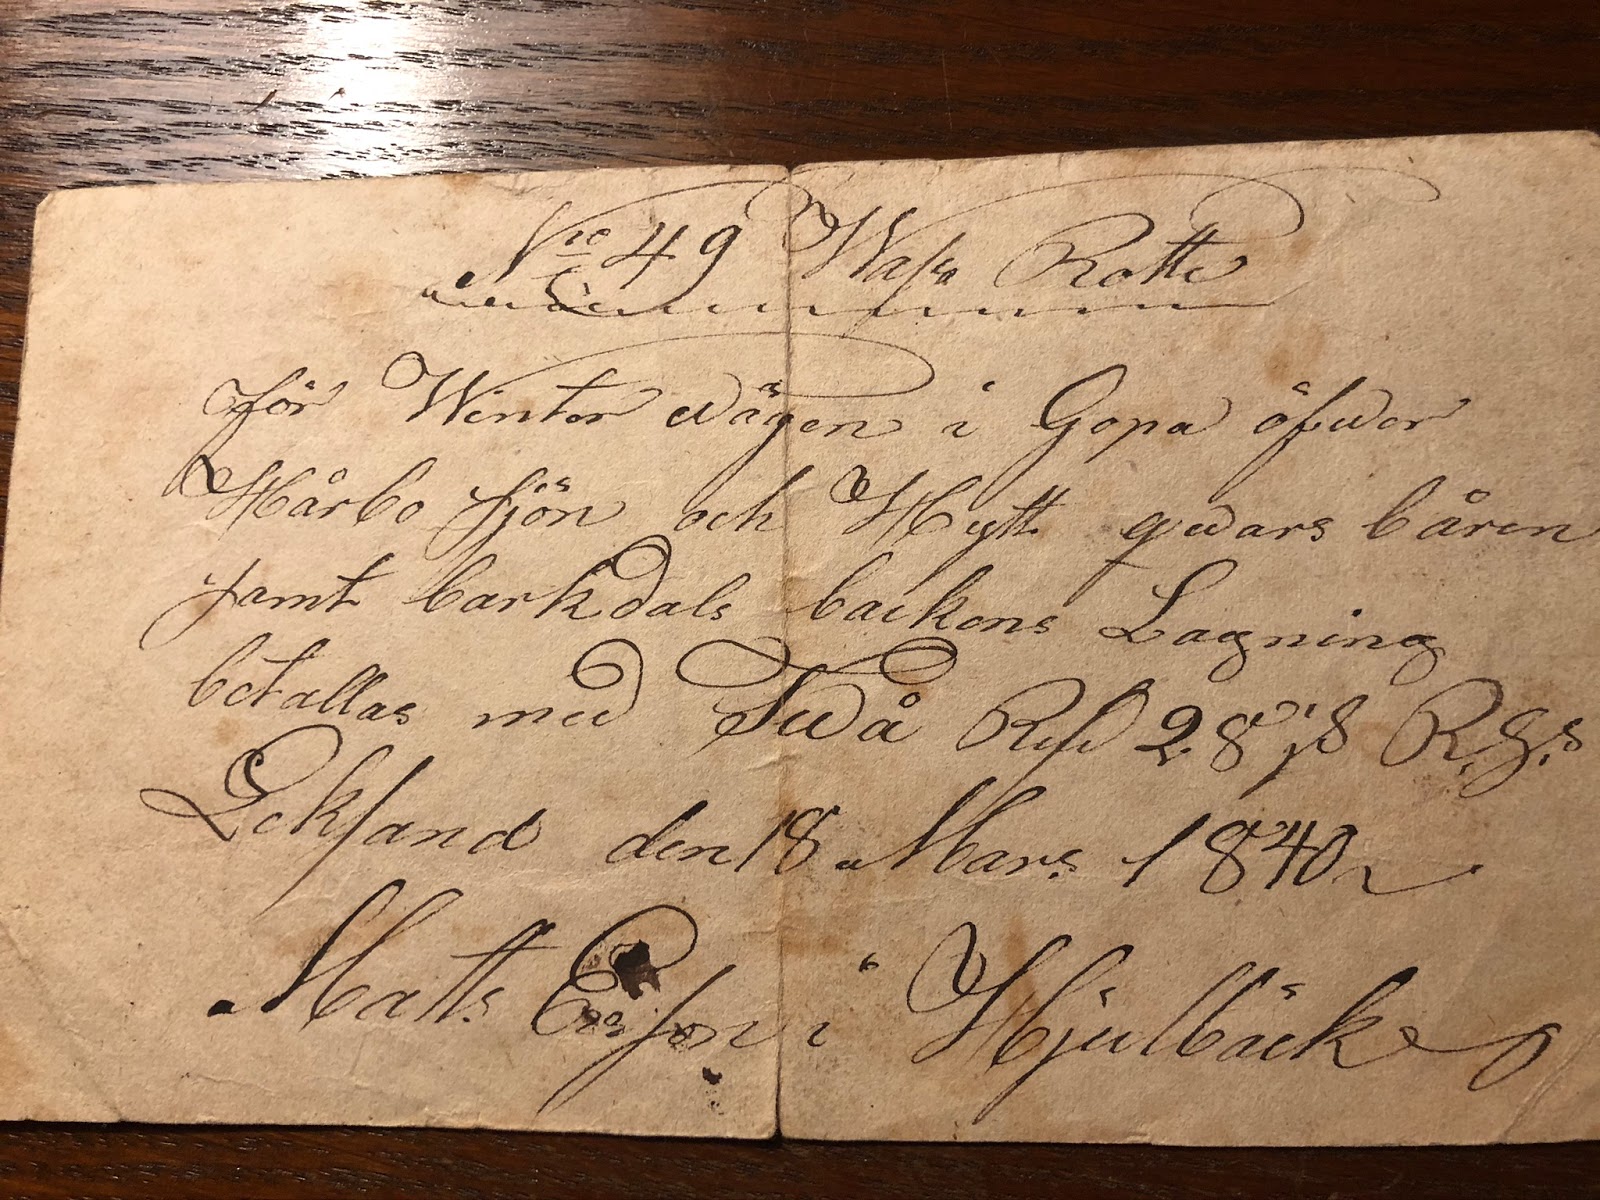 No 49 Wassa Rotte
för Winter wägen i Gopa öfwer
Hårbo sjön och Hytt qwars båren
samt barkdals backens Lagning
betallas med Twå Rsd 28 s R.g.s
Leksand den 18 Mars 1840
Matts Ersson i Hjulbäck